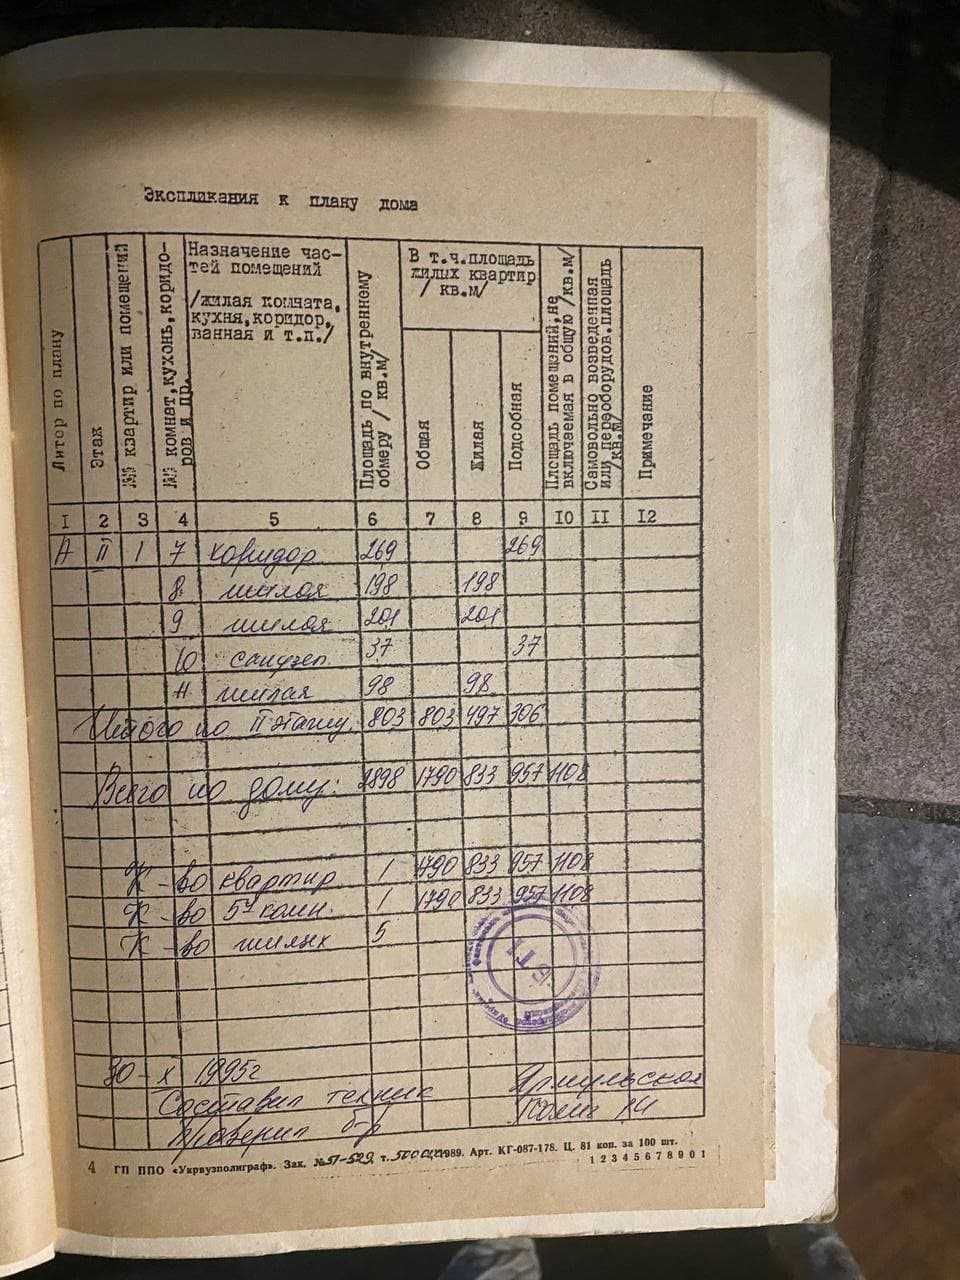 Экспликания к плану дома
Литер по плану
Этаж
№№ квартир или помещений
№№ комнат, кухонь, коридо-
ров и пр.
Назначение час-
тей помещений
/жилая комната,
кухня, коридор,
ванная и т.п./
Площадь по внутреннему
обмеру / кв.м/
В т.ч.площадь
жилых квартир
/ кв.м/
Общая
Жилая
Подсобная
Площадь помещений, не
включаемая в общую /кв.м/
Самовольно возведенная
или переоборудов.площадь
/кв.м/
Примечание
I 2 3 4 5 6 7 8 9 IO II I2
А II 1 7 коридор 269 269
8 жилая 198 198
9 жилая 201 201
10 санузел 37 37
11 жилая 98 98
Итого по II этажу 803 803 497 306
Всего по дому: 2898 1790 833 957 1108
К-во квартир 1 1790 833 957 1108
К-во 5и комн. 1 1790 833 957 1108
К-во жилых 5
БТІ
30-X 1995г
Составил техник
Проверил б-р
4 ГП ППО «Укрвузполиграф». Зак. № 51-529 т. 50000 1989. Арт. КГ-087-178. Ц. 81 коп. за 100 шт.
1 2 3 4 5 6 7 8 9 0 1